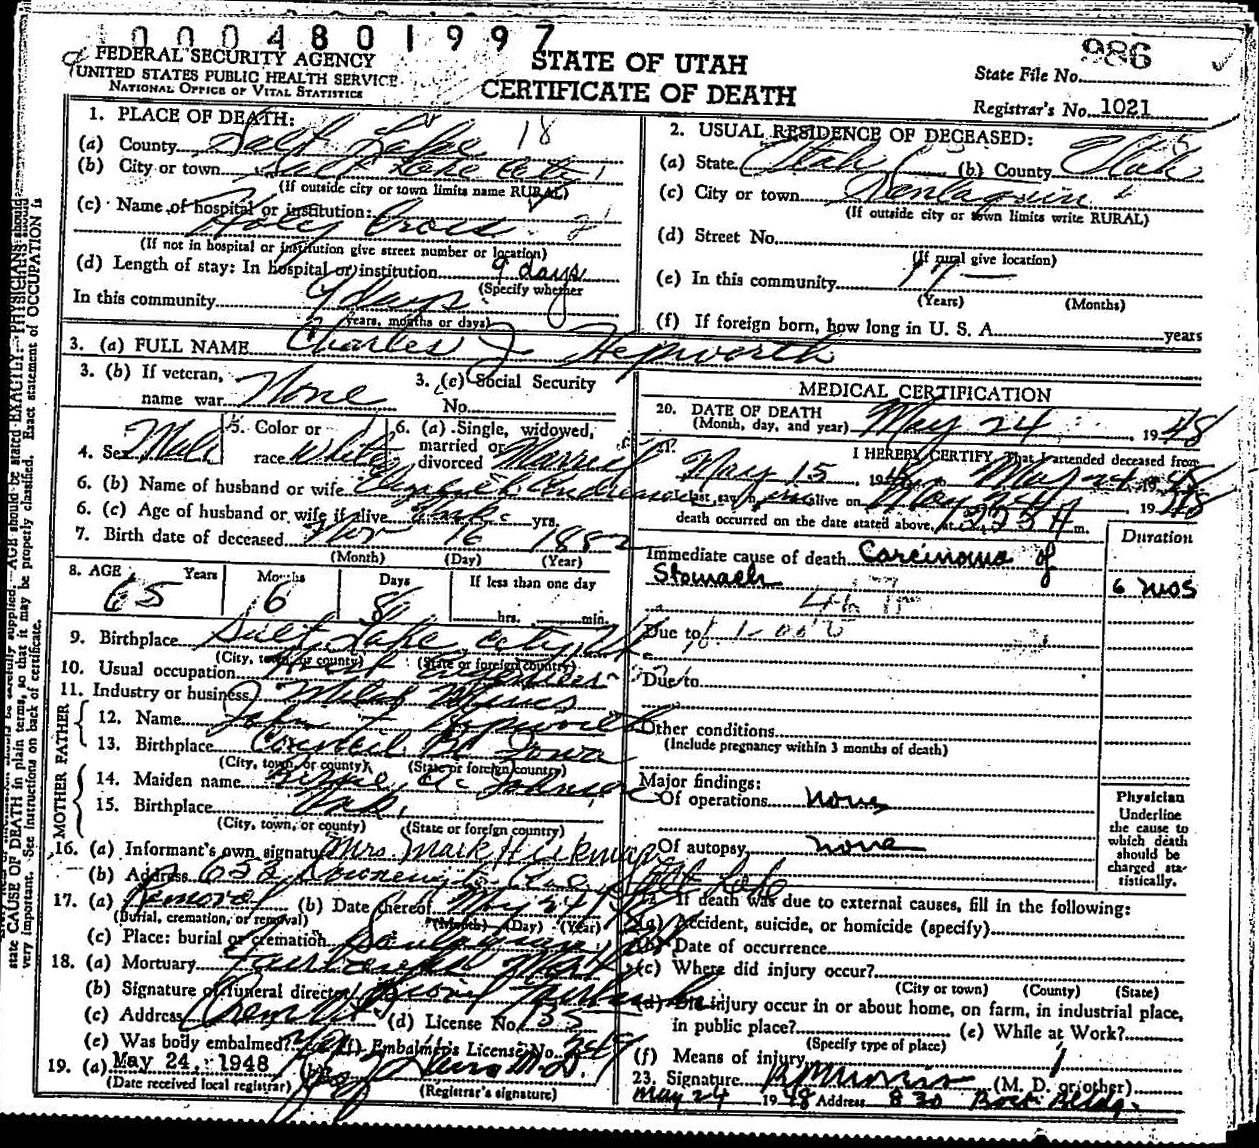 0004801997
FEDERAL SECURITY AGENCY
UNITED STATES PUBLIC HEALTH SERVICE
NATIONAL OFFICE OF VITAL STATISTICS
STATE OF UTAH
CERTIFICATE OF DEATH
986
State File No.
Registrar's No. 1021
1. PLACE OF DEATH:
(a) County Salt Lake 18
(b) City or town Salt Lake City
(If outside city or town limits name RURAL)
(c) Name of hospital or institution:
Holy Cross
(If not in hospital or institution give street number or location)
(d) Length of stay: In hospital or institution 9 days
(Specify whether
In this community 9 days
years, months or days)
2. USUAL RESIDENCE OF DECEASED:
(a) State Utah (b) County Utah
(c) City or town Santaquin
(If outside city or town limits write RURAL)
(d) Street No.
(If rural give location)
(e) In this community 17 —
(Years) (Months)
(f) If foreign born, how long in U. S. A. years
3. (a) FULL NAME Charles J Hepworth
3. (b) If veteran,
name war None
3. (c) Social Security
No.
4. Sex Male
5. Color or
race White
6. (a) Single, widowed,
married or
divorced Married
6. (b) Name of husband or wife Elizabeth
6. (c) Age of husband or wife if alive Unk. yrs.
7. Birth date of deceased Nov 16 1882
(Month) (Day) (Year)
8. AGE Years Months Days If less than one day
65 6 8 hrs. min.
9. Birthplace Salt Lake City
(City, town, or county) (State or foreign country)
10. Usual occupation
11. Industry or business
FATHER
12. Name John F Hepworth
13. Birthplace Council Iowa
(City, town, or county) (State or foreign country)
MOTHER
14. Maiden name Johnson
15. Birthplace Unk.
(City, town, or county) (State or foreign country)
16. (a) Informant's own signature Mrs. Mark Hickman
(b) Address Salt Lake
17. (a) Removal (b) Date thereof May 24
(Burial, cremation, or removal) (Month) (Day) (Year)
(c) Place: burial or cremation Santaquin
18. (a) Mortuary
(b) Signature of funeral director
(c) Address (d) License No. 35
(e) Was body embalmed? (f) Embalmer's License No.
19. (a) May 24, 1948 (b) M.D.
(Date received local registrar) (Registrar's signature)
MEDICAL CERTIFICATION
20. DATE OF DEATH
(Month, day, and year) May 24, 1948
21. I HEREBY CERTIFY, That I attended deceased from
May 15, 1948 to May 24, 1948
last saw him alive on May 24, 1948
death occurred on the date stated above, at m.
Duration
Immediate cause of death Carcinoma of
Stomach 6 mos
Due to
Due to
Other conditions
(Include pregnancy within 3 months of death)
Major findings:
Of operations none
Of autopsy none
Physician
Underline
the cause to
which death
should be
charged sta-
tistically.
22. If death was due to external causes, fill in the following:
(a) Accident, suicide, or homicide (specify)
(b) Date of occurrence
(c) Where did injury occur?
(City or town) (County) (State)
(d) Did injury occur in or about home, on farm, in industrial place,
in public place? (e) While at Work?
(Specify type of place)
(f) Means of injury
23. Signature (M. D. or other)
May 24 1948 Address 830 Bldg.